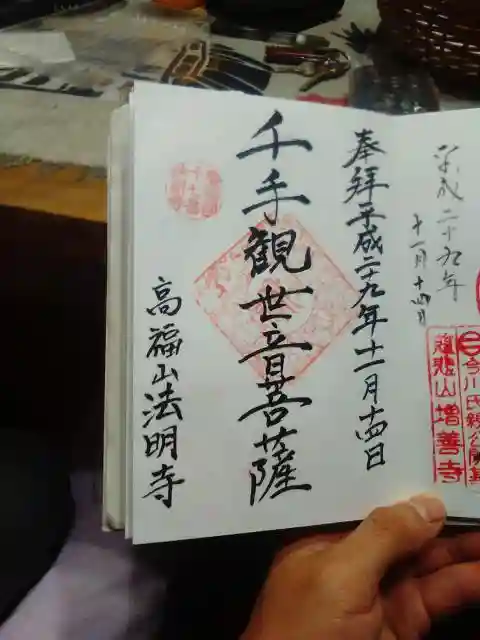 平成二十九年
十一月十四日
今川氏親公開基
慈悲山増善寺
奉拝平成二十九年十一月十四日
千手観世音菩薩
高福山法明寺